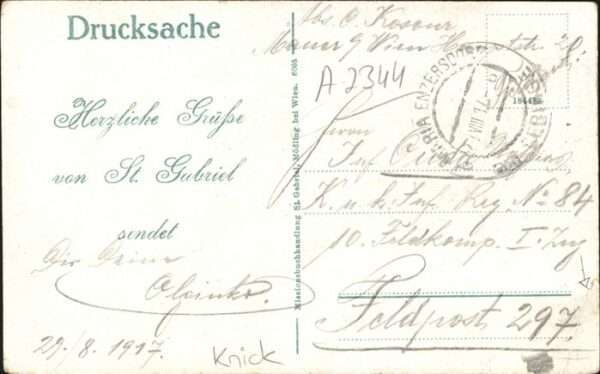 Drucksache
Herzliche Grüße
von St. Gabriel
sendet
Dir Deine
29./8. 1917.
Knick
Missionsbuchhandlung St. Gabriel, Mödling bei Wien.
Abs. O.
Mauer b/ Wien
A 2344
MARIA ENZERSDORF
VIII 17
Herrn
Inf.
K. u. k. Inf. Reg. No 84
10. Feldkomp. I. Zug
Feldpost 297.